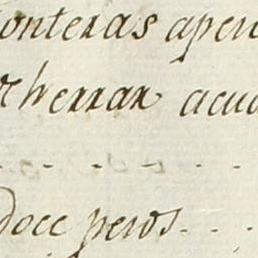 onteras aper
herrar acu
doce pesos